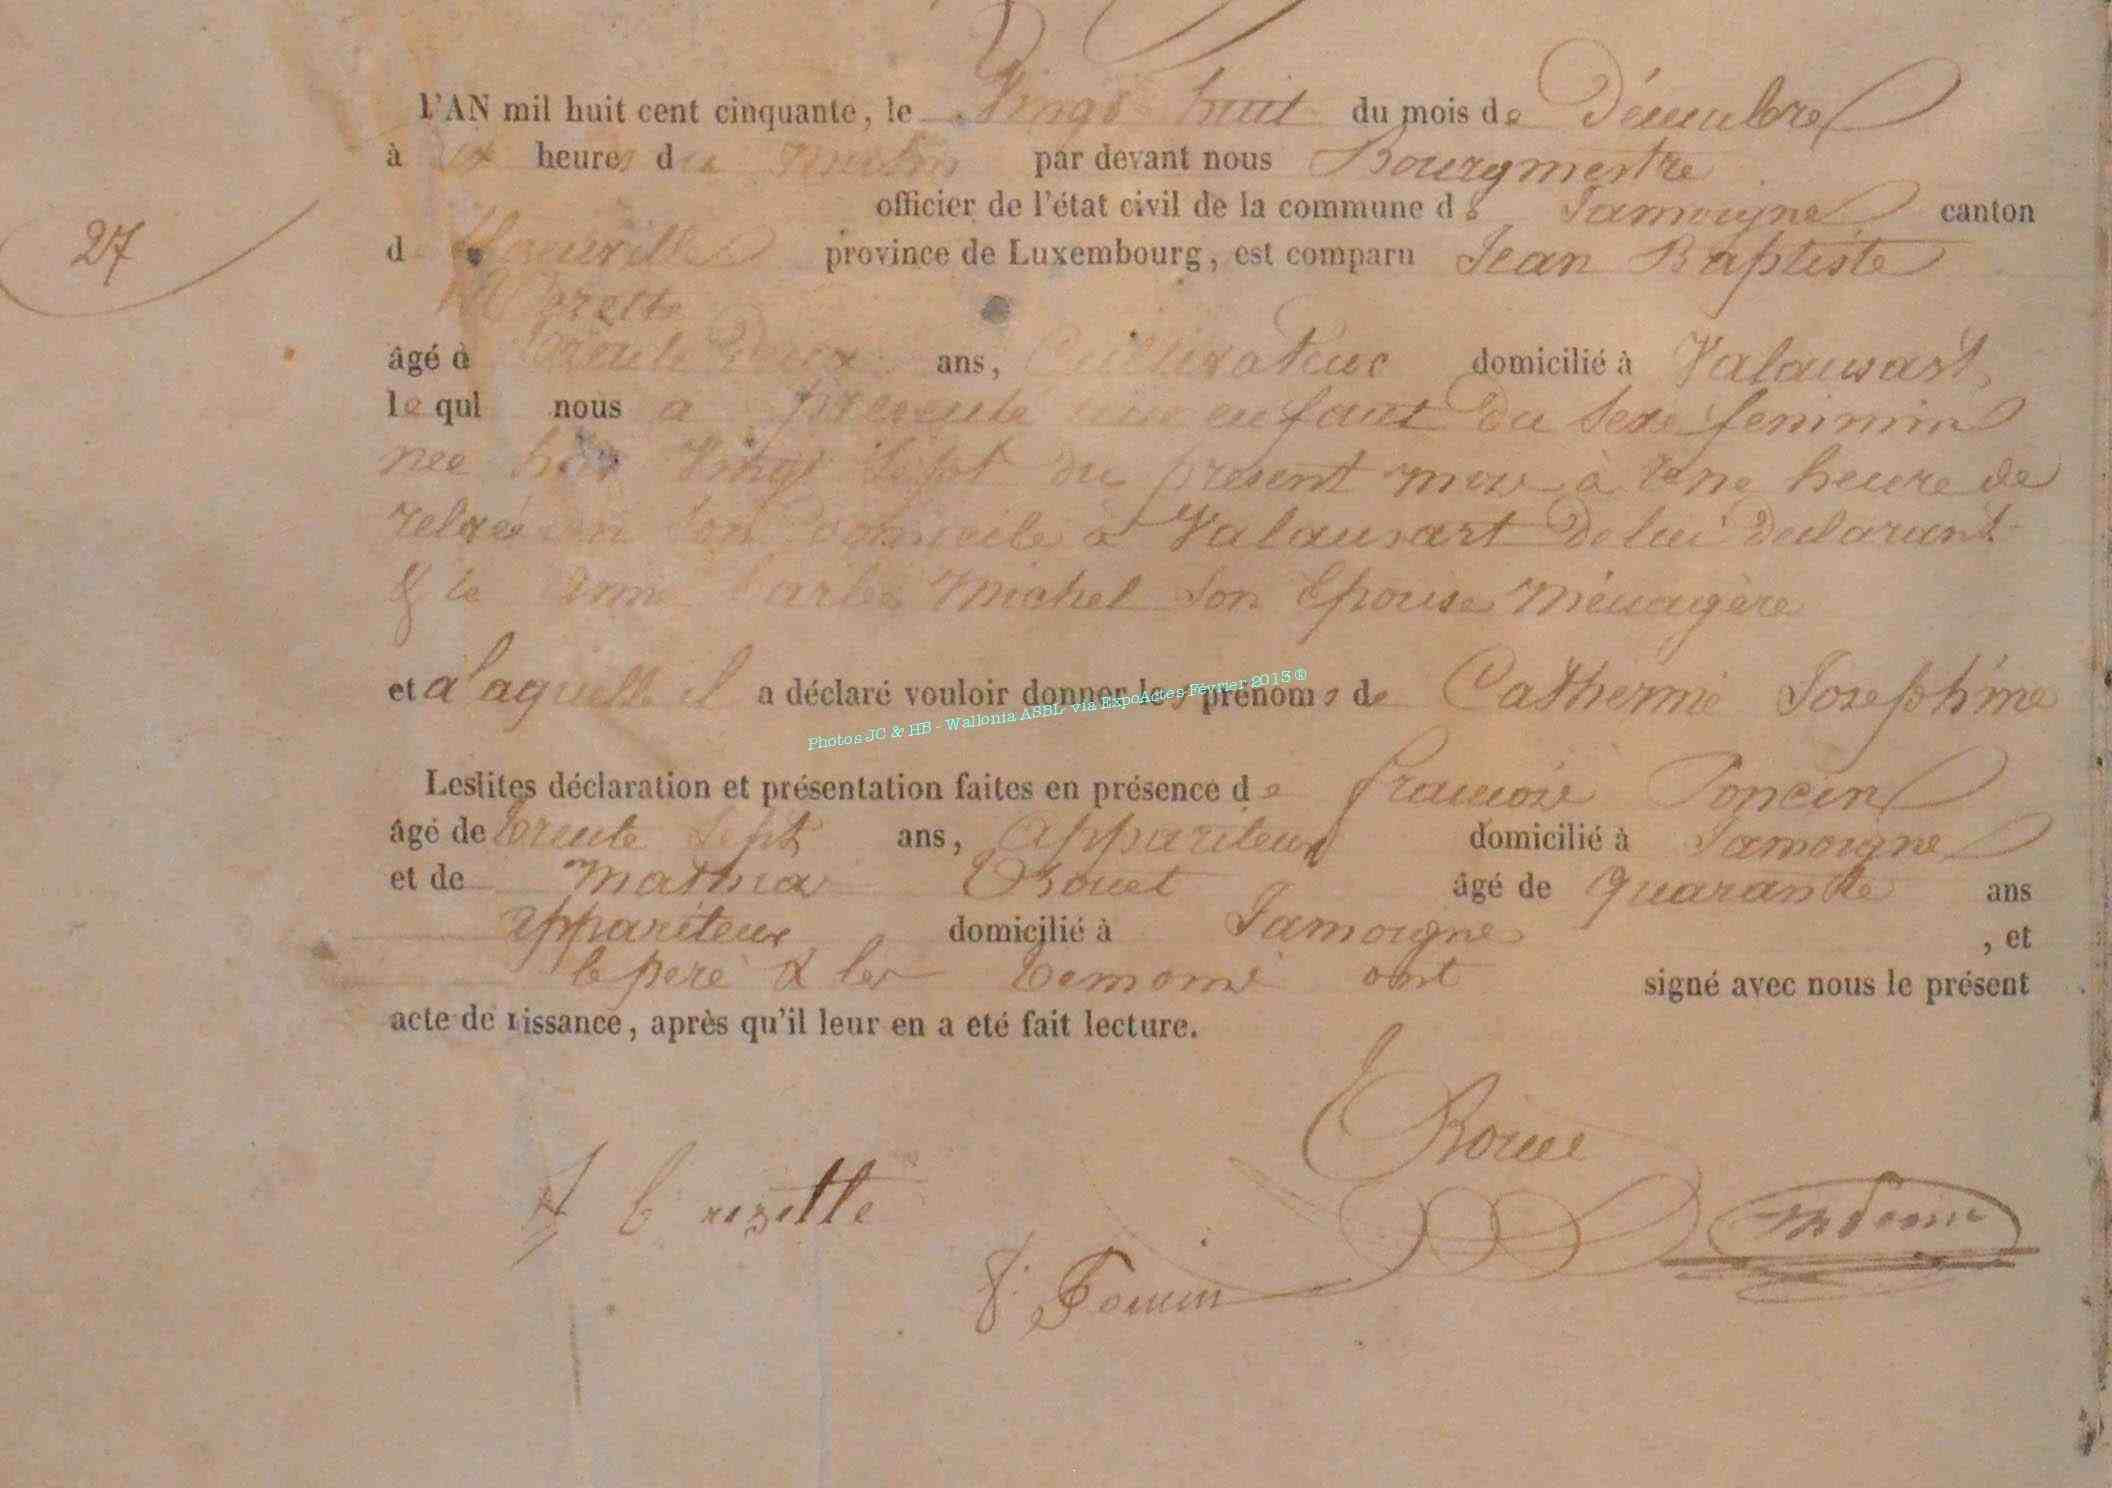 L'AN mil huit cent cinquante, le Vingt huit du mois de Décembre
à dix heures du matin par devant nous Bourgmestre
officier de l'état civil de la commune de Jamoigne canton
27
de province de Luxembourg, est comparu Jean Baptiste
âgé de trente Deux ans, Cultivateur domicilié à Valansart
lequel nous a présenté une enfant du Sexe feminin
nee hier Vingt Sept du present mois à Une heure de
relevée en son domicile à Valansart De lui Declarant
& de anne Michel Son Epouse Ménagère
et a laquelle il a déclaré vouloir donner les prénoms de Catherine Josephine
Photos JC & HB - Wallonia ASBL via ExpoActes Février 2013 ®
Lesdites déclaration et présentation faites en présence de francois Poncin
âgé de trente Sept ans, appariteur domicilié à Jamoigne
et de Mathias âgé de quarante ans
appariteur domicilié à Jamoigne , et
le pere & les temoins ont signé avec nous le présent
acte de naissance, après qu'il leur en a été fait lecture.